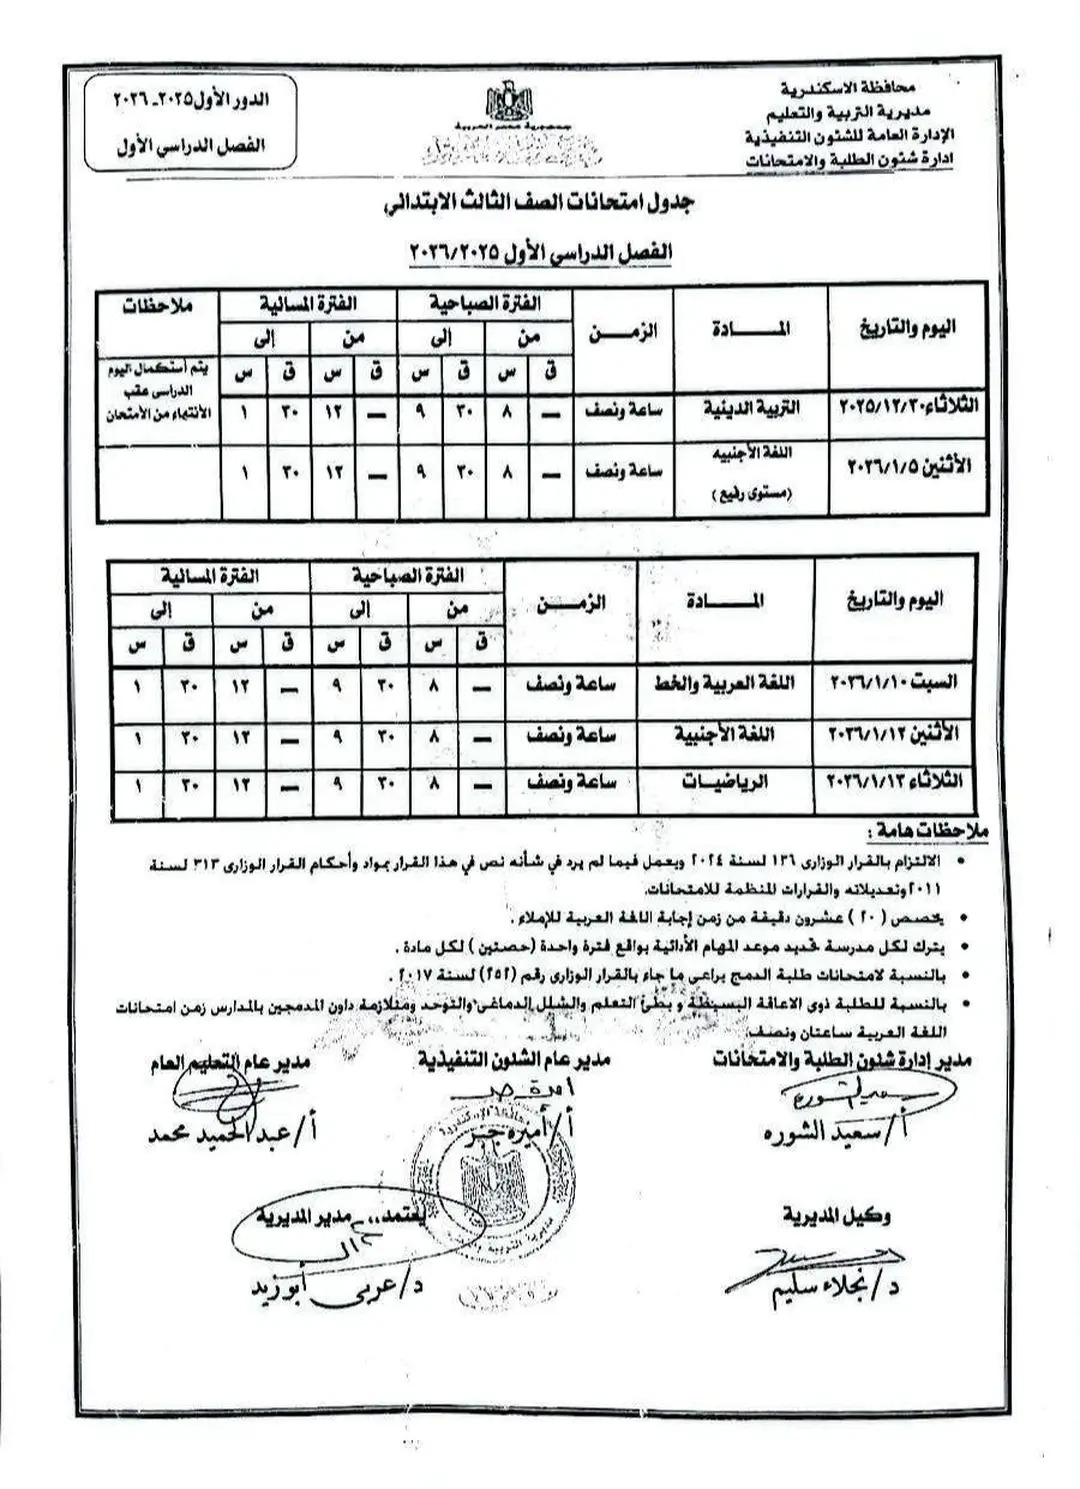 محافظة الاسكندرية
مديرية التربية والتعليم
الإدارة العامة للشئون التنفيذية
ادارة شئون الطلبة والامتحانات
جمهورية مصر العربية
الدور الأول ٢٠٢٥ـ ٢٠٢٦
الفصل الدراسي الأول
جدول امتحانات الصف الثالث الابتدائي
الفصل الدراسي الأول ٢٠٢٦/٢٠٢٥
اليوم والتاريخ المـــــادة الزمـــن الفترة الصباحية الفترة المسائية ملاحظات
من إلى من إلى
ق س ق س ق س ق س
يتم أستكمال اليوم الدراسى عقب الأنتهاء من الأمتحان
الثلاثاء ٢٠٢٥/١٢/٣٠ التربية الدينية ساعة ونصف — ٨ ٣٠ ٩ — ١٢ ٣٠ ١
الأثنين ٢٠٢٦/١/٥ اللغة الأجنبيه (مستوى رفيع) ساعة ونصف — ٨ ٣٠ ٩ — ١٢ ٣٠ ١
اليوم والتاريخ المـــــادة الزمـــن الفترة الصباحية الفترة المسائية
من إلى من إلى
ق س ق س ق س ق س
السبت ٢٠٢٦/١/١٠ اللغة العربية والخط ساعة ونصف — ٨ ٣٠ ٩ — ١٢ ٣٠ ١
الأثنين ٢٠٢٦/١/١٢ اللغة الأجنبية ساعة ونصف — ٨ ٣٠ ٩ — ١٢ ٣٠ ١
الثلاثاء ٢٠٢٦/١/١٣ الرياضيــات ساعة ونصف — ٨ ٣٠ ٩ — ١٢ ٣٠ ١
ملاحظات هامة :
• الالتزام بالقرار الوزارى ١٣٦ لسنة ٢٠٢٤ ويعمل فيما لم يرد في شأنه نص في هذا القرار بمواد وأحكام القرار الوزارى ٣١٣ لسنة
٢٠١١ وتعديلاته والقرارات المنظمة للامتحانات.
• يخصص ( ٢٠ ) عشرون دقيقة من زمن إجابة اللغة العربية للإملاء .
• يترك لكل مدرسة تحديد موعد المهام الأدائية بواقع فترة واحدة (حصتين ) لكل مادة .
• بالنسبة لامتحانات طلبة الدمج يراعى ما جاء بالقرار الوزارى رقم (٢٥٢) لسنة ٢٠١٧ .
• بالنسبة للطلبة ذوى الاعاقة البسيطة و بطئ التعلم والشلل الدماغى والتوحد ومتلازمة داون المدمجين بالمدارس زمن امتحانات
اللغة العربية ساعتان ونصف.
مدير إدارة شئون الطلبة والامتحانات مدير عام الشئون التنفيذية مدير عام التعليم العام
أ/ سعيد الشوره أ/ أميره جبر أ/ عبد الحميد محمد
وكيل المديرية يعتمد،، مدير المديرية
د/ نجلاء سليم د/ عربى أبوزيد